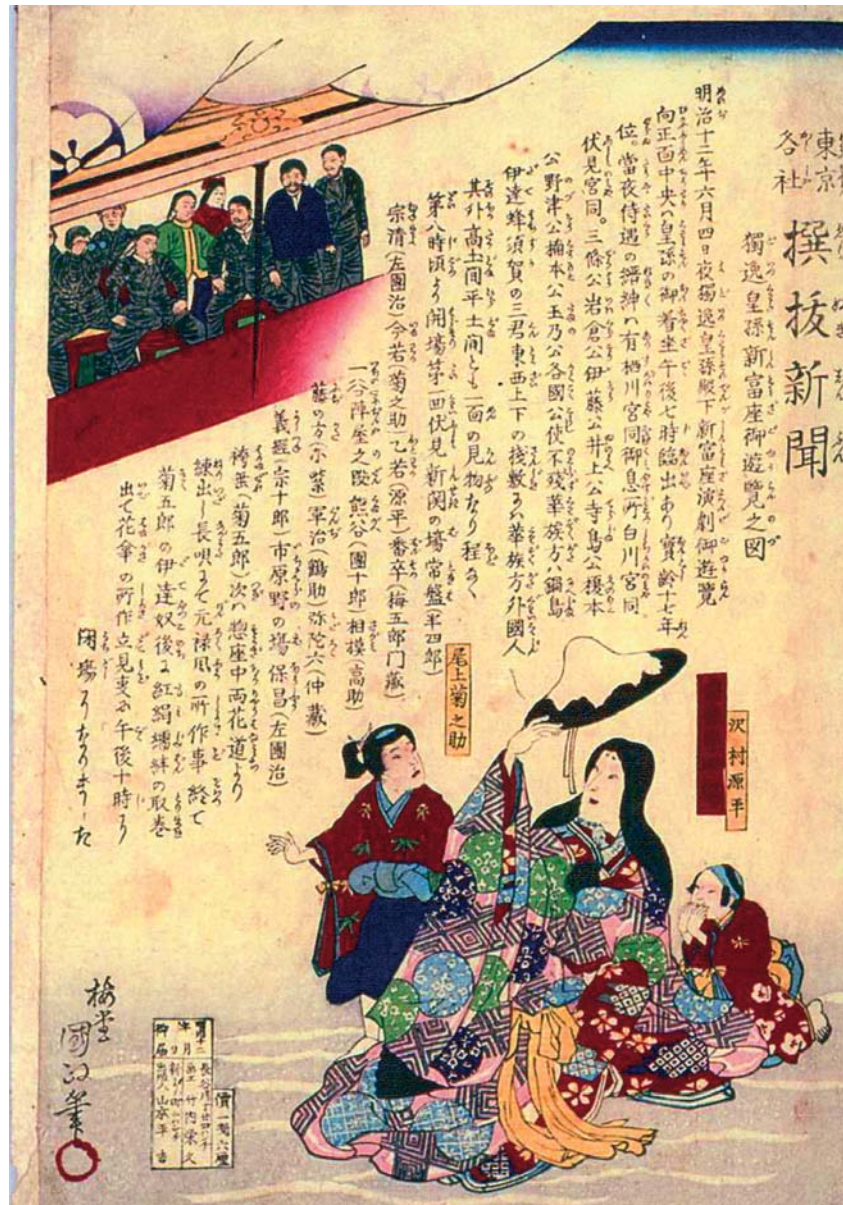 東京
各社
撰抜新聞
獨逸皇孫新富座御遊覧之図
明治十二年六月四日夜獨逸皇孫殿下新富座演劇御遊覧
向正面中央ハ皇孫の御着坐午後七時臨出あり寶齢十七年
位。當夜侍遇の縉紳ハ有栖川宮同御息所白川宮同
伏見宮同。三條公岩倉公伊藤公井上公寺島公榎本
公野津公楠本公玉乃公各國公使不残華族方ハ鍋島
伊達蜂須賀の三君東西上下の桟敷ハ華族方外國人
其外高土間平土間とも一面の見物なり程なく
第八時頃より開場第一回伏見新関の場常盤(半四郎)
宗清(左團治)今若(菊之助)乙若(源平)番卒(梅五郎門蔵)
一谷陣屋之段熊谷(團十郎)相模(高助)
藤の方(小紫)軍治(鶴助)弥陀六(仲蔵)
義経(宗十郎)市原野の場保昌(左團治)
袴垂(菊五郎)次ハ惣座中両花道より
練出し長唄にて元禄風の所作事終て
菊五郎の伊達奴後に紅絹襦袢の取巻
出て花傘の所作立見事や午後十時に
閉場になりました
尾上菊之助
沢村源平
梅堂
國政筆
價一銭六厘
長谷川
画工 竹内榮久
出版人 山本平吉